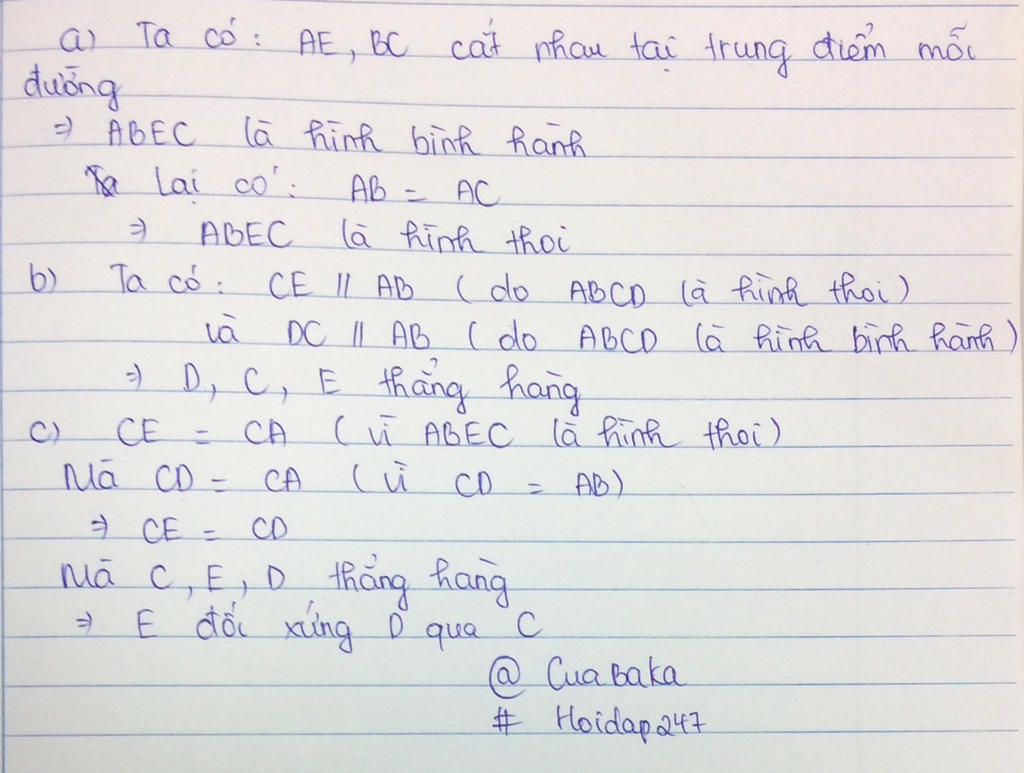 a) Ta có: AE, BC cắt nhau tại trung điểm mỗi
đường
⇒ ABEC là hình bình hành
Ta lại có: AB = AC
⇒ ABEC là hình thoi
b) Ta có: CE // AB (do ABCD là hình thoi)
và DC // AB (do ABCD là hình bình hành)
⇒ D, C, E thẳng hàng
c) CE = CA (vì ABEC là hình thoi)
Mà CD = CA (vì CD = AB)
⇒ CE = CD
Mà C, E, D thẳng hàng
⇒ E đối xứng D qua C
@ CuaBaka
# Hoidap247